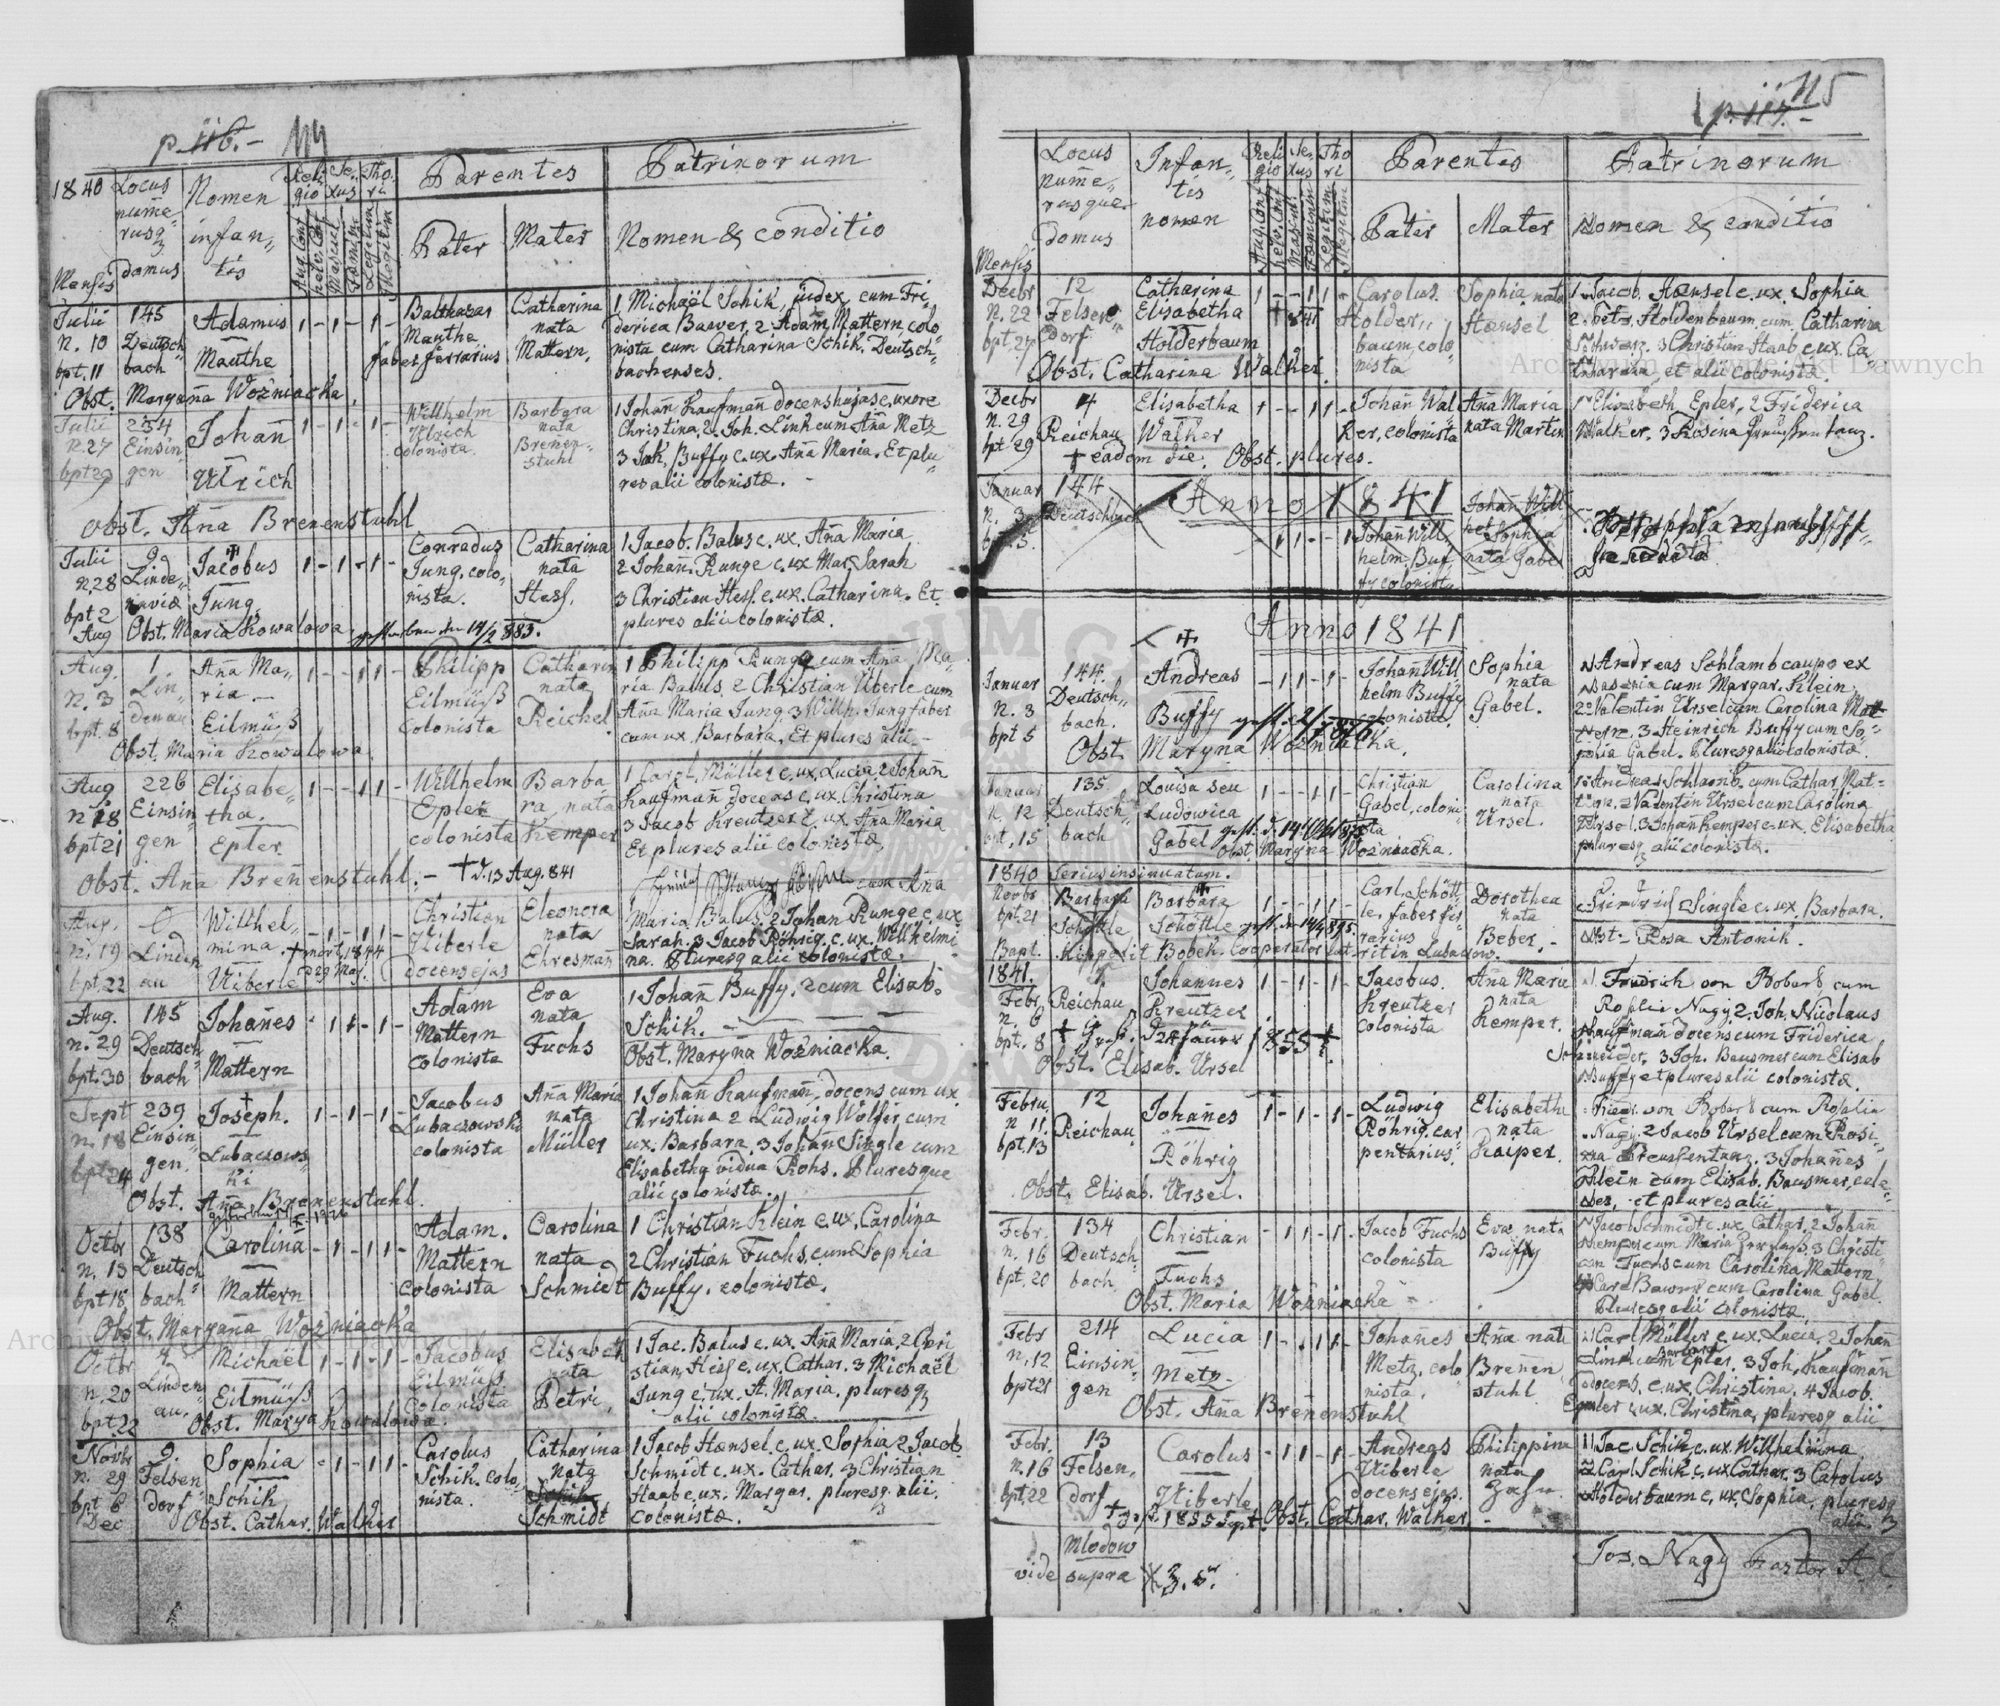 p. 116.-
1840
Locus
nume-
rusq
domus
Mensis
Nomen
infan-
tis
Reli-
gio
Se-
xus
Tho-
ri
Parentes
Pater
Mater
Patrinorum
Nomen & conditio
Julii
n. 10
bpt. 11
145
Deutsch
bach
Adamus
Manthe
1 - 1 - 1 -
Balthasar
Manthe
faber ferrarius
Catharina
nata
Mattern.
1 Michaël Schik, judex cum Fri
derica Bawer, 2 Adam Mattern, colo
nista cum Catharina Schik. Deutsch-
bachenses.
Obst. Maryaña Wożniacka.
Julii
n. 27
bpt 29
234
Einsin
gen
Johañ
Ulrich
1 - 1 - 1 -
Willhelm
Ulrich
colonista
Barbara
nata
Breñen-
stuhl
1 Johañ Kaufmañ docens hujas c. uxore
Christina, 2. Joh. Link cum Aña Metz
3 Jak. Buffy c. ux. Aña Maria. Et plu
res alii colonistæ. -
Obst. Aña Breñenstuhl
Julii
n. 28
bpt 2
Aug
9
Linde-
naviæ
Jacobus
Jung.
1 - 1 - 1 -
Conradus
Jung, colo-
nista.
Catharina
nata
Hess.
1 Jacob. Balus c. ux. Aña Maria
2 Johañ. Runge c. ux Mar. Sarah
3 Christian Hess. c. ux. Catharina. Et
plures alii colonistæ.
Obst. Maria Kowalowa.
Aug.
n. 3
bpt. 8
1
Lin-
denau
Aña Ma-
ria -
Eilmüß
1 - - 1 1 -
Philipp
Eilmüß
colonista
Catharin
nata
Reichel
1 Philipp Runge cum Aña Ma-
ria Balus, 2 Christian Überle cum
Aña Maria Jung. 3 Willh. Jung faber
cum ux. Barbara. Et plures alii -
Obst. Maria Kowalowa
Aug
n 18
bpt 21
226
Einsin
gen
Elisabe-
tha.
Epler.
1 - - 1 1 -
Willhelm
Epler
colonista
Barba
ra, nata
Kemper
1 Carol. Müller c. ux. Lucia, 2 Johañ
Kaufmañ docens c. ux. Christina
3 Jacob Kreutzer c. ux. Aña Maria
Et plures alii colonistæ.
Obst. Aña Breñenstuhl. - † d. 13 Aug. 841
Aug.
n. 19
bpt. 22
Linden
au
Willhel-
mina.
Uiberle
Christian
Uiberle
docens ejas
Eleonora
nata
Ehresmañ
cum Aña
Maria Balus, 2 Johan Runge c. ux
Sarah. 3 Jacob Röhrig. c. ux. Willhelmi
na. Pluresq alii colonistæ.
Aug.
n. 29
bpt. 30
145
Deutsch
bach
Johañes
Mattern
- 1 1 - 1 -
Adam
Mattern
colonista
Eva
nata
Fuchs
1 Johañ Buffy. 2 cum Elisab.
Schik. -
Obst. Maryña Wożniacka.
Sept
n. 18
bpt 24
239
Einsin
gen.
Joseph.
Lubaczows-
ki
1 - 1 - 1 -
Jacobus
Lubaczowski
colonista
Aña Maria
nata
Müller
1 Johañ Kaufmañ, docens cum ux.
Christina 2 Ludwig Wolfer, cum
ux. Barbara. 3 Johañ Single cum
Elisabetha vidua Rohs. Pluresque
alii colonistæ.
Obst. Aña Breñenstuhl.
Octbr
n. 13
bpt 18
138
Deutsch
bach
Carolina
Mattern
- 1 - 1 1 -
Adam.
Mattern
colonista
Carolina
nata
Schmidt
1 Christian Klein c. ux. Carolina
2 Christian Fuchs. cum Sophia
Buffy. colonistæ.
Obst. Maryaña Wożniacka
Octbr
n. 20
bpt. 22
4.
Linden
au.
Michaël
Eilmüß
1 - 1 - 1 -
Jacobus
Eilmüß
colonista
Elisabeth
nata
Petri.
1 Jac. Balus c. ux. Aña Maria, 2 Chri
stian Hess c. ux. Cathar. 3 Michaël
Jung c. ux. A. Maria. pluresq
alii colonistæ.
Obst. Marya Kowalowa.
Novbr
n. 29
bpt 6
Dec
9.
Felsen
dorf
Sophia
Schik
- 1 - 1 1 -
Carolus
Schik, colo
nista.
Catharina
nata
Schmidt
1 Jacob Hænsel c. ux. Sophia 2 Jacob
Schmidt c. ux. Cathar. 3 Christian
Haab c. ux. Margar. pluresq alii.
colonistæ.
Obst. Cathar. Walker
p. 117.-
115
Mensis
Locus
nume-
rusque
domus
Infan-
tis
nomen
Reli
gio
Se-
xus
Tho
ri
Parentes
Pater
Mater
Patrinorum
Nomen & conditio
Decbr
n. 22
bpt. 27
12
Felsen-
dorf
Catharina
Elisabetha
Holderbaum
1 - - 1 1 -
Carolus
Holder-
baum, colo
nista
Sophia nata
Hænsel
1. Jacob. Hænsel c. ux. Sophia
2. Petr. Holdenbaum cum Catharina
Schwarz. 3 Christian Haab c. ux. Ca-
tharina, et alii colonistæ.
Obst. Catharina Walker.
Decbr
n. 29
bpt 29
4
Reichau
Elisabetha
Walker
1 - - 1 1 -
Johañ Wal
ker, colonista
Aña Maria
nata Martin
Elisabeth Epler, 2 Friderica
Walker. 3 Rosina
† eadem die. Obst. plures.
Januar
n. 3
bpt. 5
144
Deutschbach
Anno 1841
Johañ Will
helm Buf
fy colonist
Johañ Will
hel Sophia
nata Gabel
Anno 1841
Januar
n. 3
bpt 5
144.
Deutsch-
bach.
Andreas
Buffy
- 1 1 - 1 -
Johañ Will
helm Buffy
colonista.
Sophia
nata
Gabel.
Andreas Schlamb caupo ex
Basznia cum Margar. Klein
2 Valentin Ursel cum Carolina Mat
tern. 3 Heinrich Buffy cum So-
phia Gabel. Pluresq alii colonistæ.
Obst. Maryna Wożniacka.
Januar
n. 12
bpt. 15
135
Deutsch-
bach
Louisa seu
Ludowica
Gabel
1 - - 1 1 -
Christian
Gabel, coloni-
sta
Carolina
nata
Ursel.
1 Andreas Schlamb. cum Cathar. Mat-
tern. 2 Valentin Ursel cum Carolina
Ursel. 3 Johañ Kemper c. ux. Elisabetha
pluresq alii colonistæ.
Obst. Maryna Wożniacka.
1840 Serius insinuatum.
Novbr
bpt. 21
Barbara
Schöttle
Barbara
Schöttle
1 - - 1 1 -
Carl. Schött
le, faber fer
rarius
Dorothea
nata
Beber. -
Friedrich Single c. ux. Barbara.
Obst - Rosa Antonik.
Bapt. Hippolit Bobek. Cooperator
1841.
Febr.
n. 6
bpt. 8
5
Reichau
Johannes
Kreutzer
1 - 1 - 1 -
Jacobus
Kreutzer
colonista
Aña Marie
nata
Kemper.
1. Friedrich von Robart cum
Rosalia Nagy 2. Joh. Nicolaus
Kaufmañ docens cum Friderica
Schneider, 3 Joh. Beusmer cum Elisab
Buffy et plures alii colonistæ.
Obst. Elisab. Ursel
Febru.
n 11.
bpt. 13
12
Reichau
Johañes
Röhrig
1 - 1 - 1 -
Ludwig
Röhrig. car
pentarius.
Elisabetha
nata
Kaiper.
Friedr. von Robart cum Rosalia
Nagy. 2 Jacob Ursel cum Rosi-
na Kreussentanz. 3 Johañes
Klein cum Elisab. Bausmer, cæle-
bes, et plures alii
Obst. Elisab. Ursel.
Febr.
n. 16
bpt. 20
134
Deutsch
bach
Christian
Fuchs
- 1 1 - 1 -
Jacob Fuchs
colonista
Eva nata
Buffy
Jacob Schmidt c. ux. Cathar, 2 Johañ
Kemper cum Maria Zerfass, 3 Christi
an Fuchs cum Carolina Mattern
4 Carl Bawer cum Carolina Gabel
Pluresq alii colonistæ
Obst. Maria Wożniacka
Febr
n. 12
bpt 21
214
Einsin
gen
Lucia
Metz -
1 - - 1 1 -
Johañes
Metz, colo
nista.
Aña nata
Breñen-
stuhl
1 Carl Müller c. ux. Lucia, 2 Johañ
Link cum Barbara Epler. 3 Joh. Kaufmañ
docens. c. ux. Christina. 4 Jacob.
Epler c. ux. Christina, pluresq alii
Obst. Aña Breñenstuhl
Febr.
n. 16
bpt. 22
13
Felsen-
dorf
Carolus
Uiberle
- 1 1 - 1 -
Andreas
Uiberle
docens ejas.
Philippina
nata
1 Jac. Schik, c. ux. Willhelmina
2 Carl Schik c. ux Cathar. 3 Carolus
Holderbaum c. ux. Sophia, pluresq
alii.
Obst. Cathar. Walker -
Mlodow
vide supra
Jos. Nagy Pastor A. C.